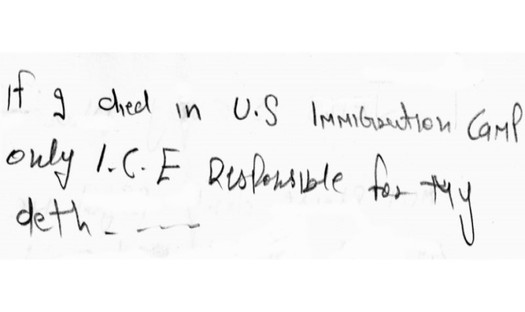 If I died in U.S Immigraution Camp
only I.C.E Responsible for My
deth - ----